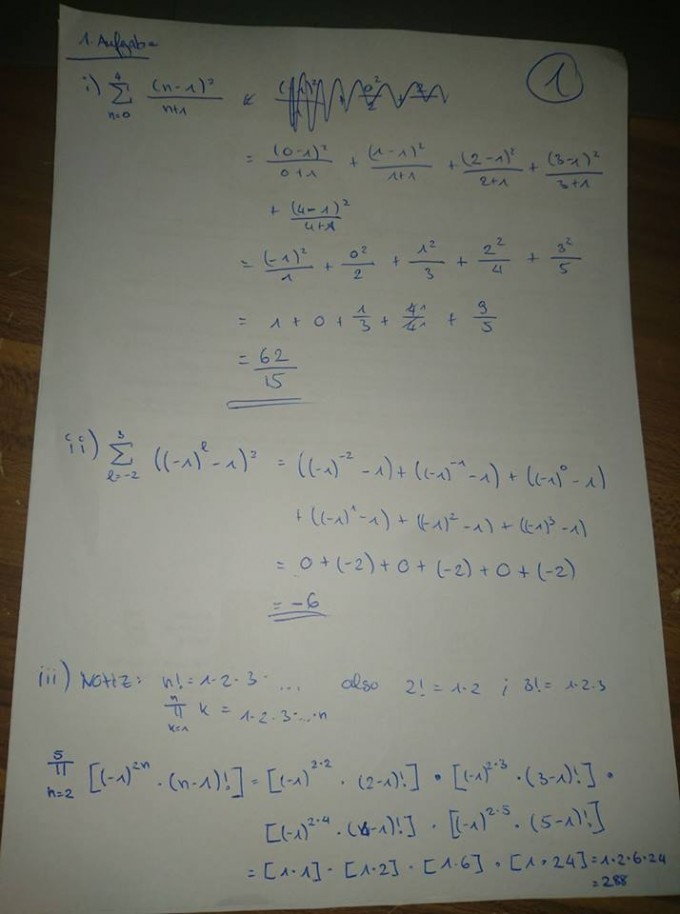 1. Aufgabe
1
i) ∑_{n=0}^{4} (n-1)²/(n+1)
= (0-1)²/(0+1) + (1-1)²/(1+1) + (2-1)²/(2+1) + (3-1)²/(3+1)
+ (4-1)²/(4+1)
= (-1)²/1 + 0²/2 + 1²/3 + 2²/4 + 3²/5
= 1 + 0 + 1/3 + 4/4 + 9/5
= 62/15
ii) ∑_{l=-2}^{3} ((-1)^l - 1)² = ((-1)^{-2} - 1) + ((-1)^{-1} - 1) + ((-1)^0 - 1)
+ ((-1)^1 - 1) + ((-1)^2 - 1) + ((-1)^3 - 1)
= 0 + (-2) + 0 + (-2) + 0 + (-2)
= -6
iii) Notiz: n! = 1·2·3· ... also 2! = 1·2 ; 3! = 1·2·3
∏_{k=1}^{n} k = 1·2·3·...·n
∏_{n=2}^{5} [(-1)^{2n} · (n-1)!] = [(-1)^{2·2} · (2-1)!] · [(-1)^{2·3} · (3-1)!] ·
[(-1)^{2·4} · (4-1)!] · [(-1)^{2·5} · (5-1)!]
= [1·1] · [1·2] · [1·6] · [1·24] = 1·2·6·24
= 288